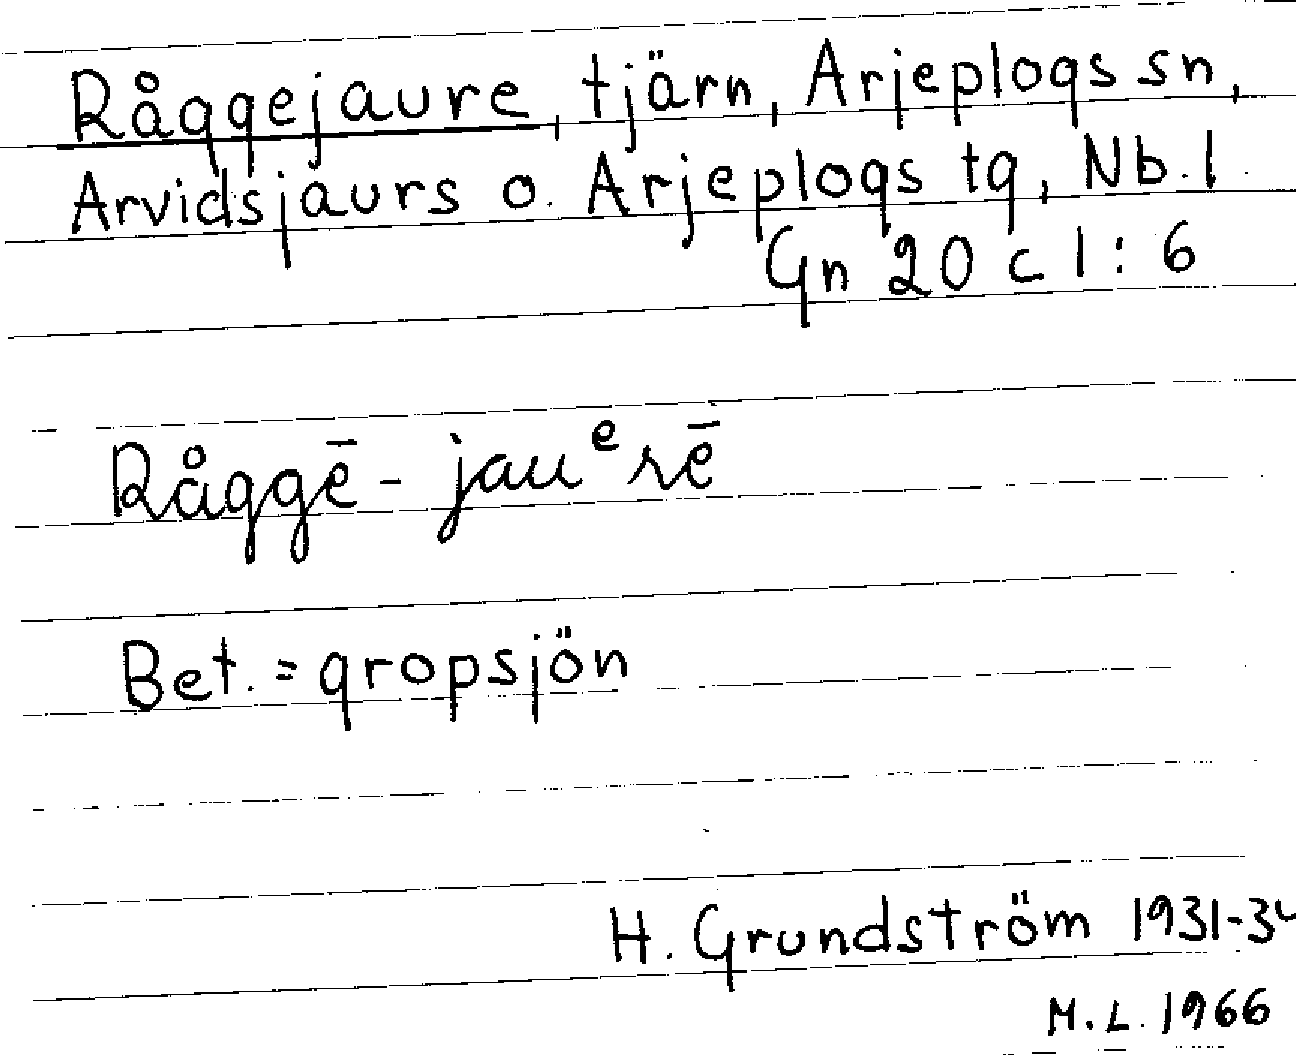 Råggejaure, tjärn, Arjeplogs sn,
Arvidsjaurs o. Arjeplogs tg, Nb.l.
Gn 20 c 1:6
Råggē-jauᵉrē
Bet. = gropsjön
H. Grundström 1931-34
M.L. 1966